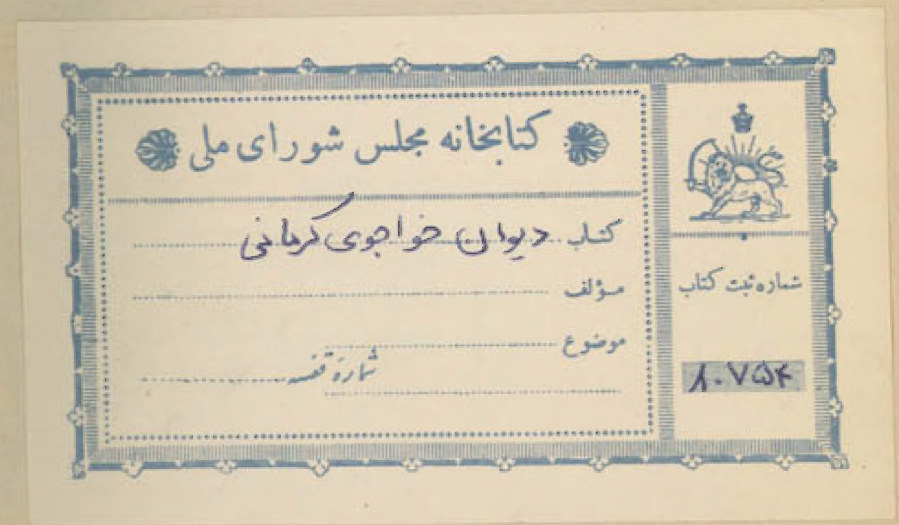 کتابخانه مجلس شورای ملی
کتاب دیوان خواجوی کرمانی
مؤلف
موضوع
شمارهٔ قفسه
شماره ثبت کتاب
۸۰۷۵۴